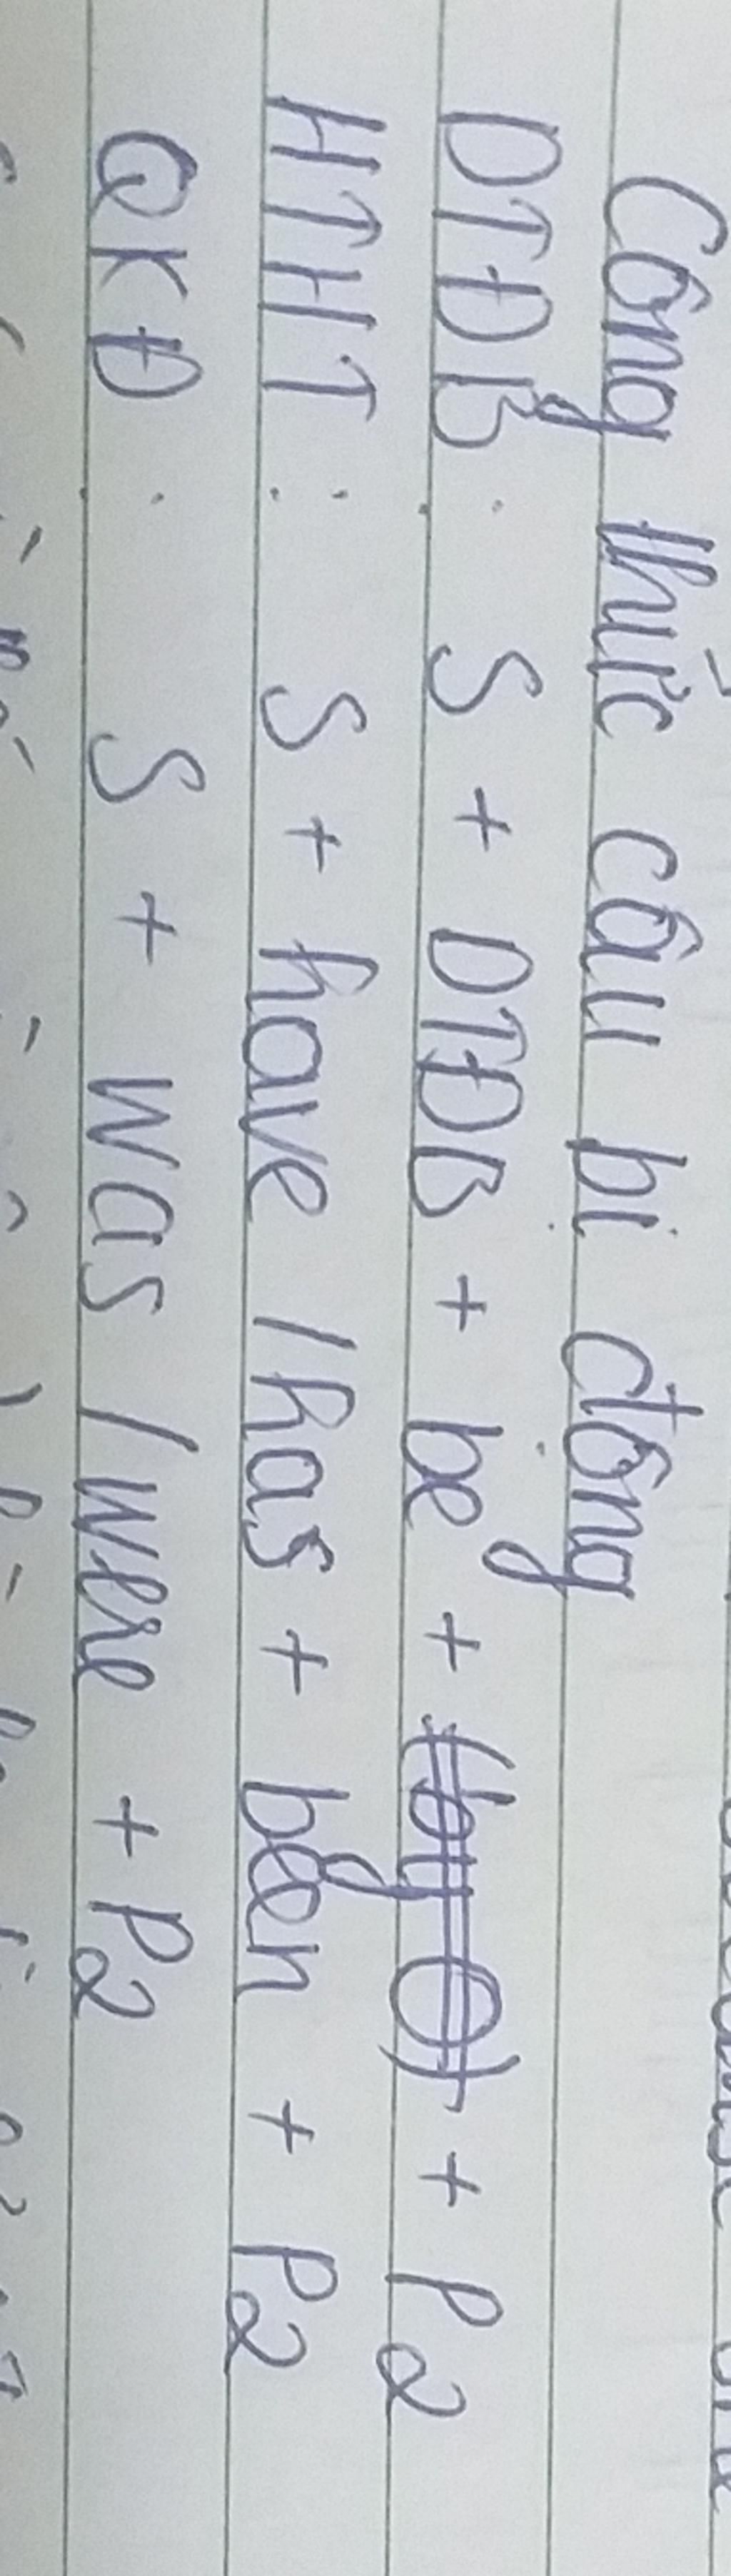 Công thức câu bị động
DTDB : S + DTDB + be + (by O) + P2
HTHT : S + have / has + been + P2
QKD : S + was / were + P2